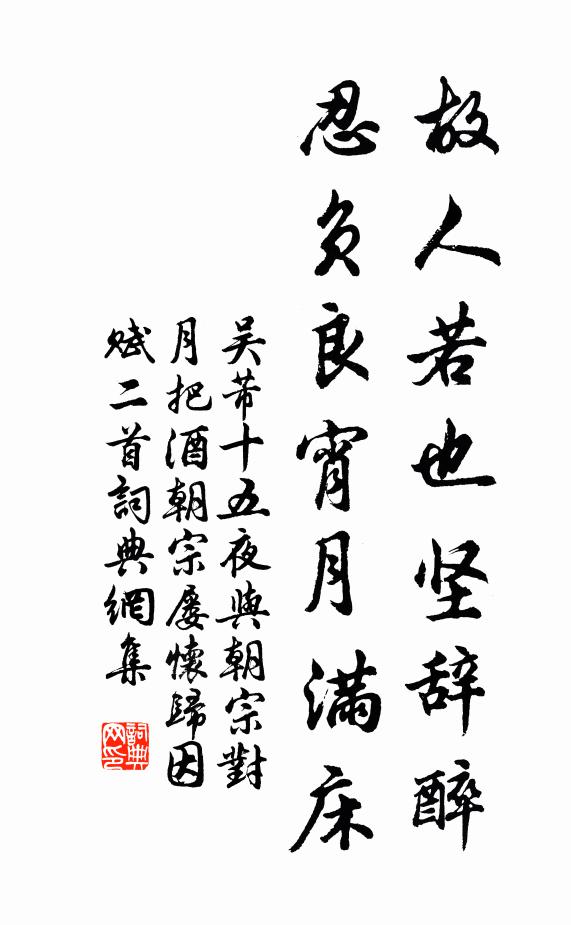 故人若也坚辞醉
忍负良宵月满床
吴芾十五夜與朝宗對
月把酒朝宗屡懷歸因
赋二首詞典網集
詞典
网印